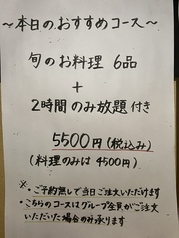 ～本日のおすすめコース～
旬のお料理 6品
+
2時間のみ放題 付き
5500円(税込み)
(料理のみは 4500円)
※・ご予約無しで当日ご注文いただけます
・こちらのコースはグループ全員がご注文
いただいた場合のみ承ります